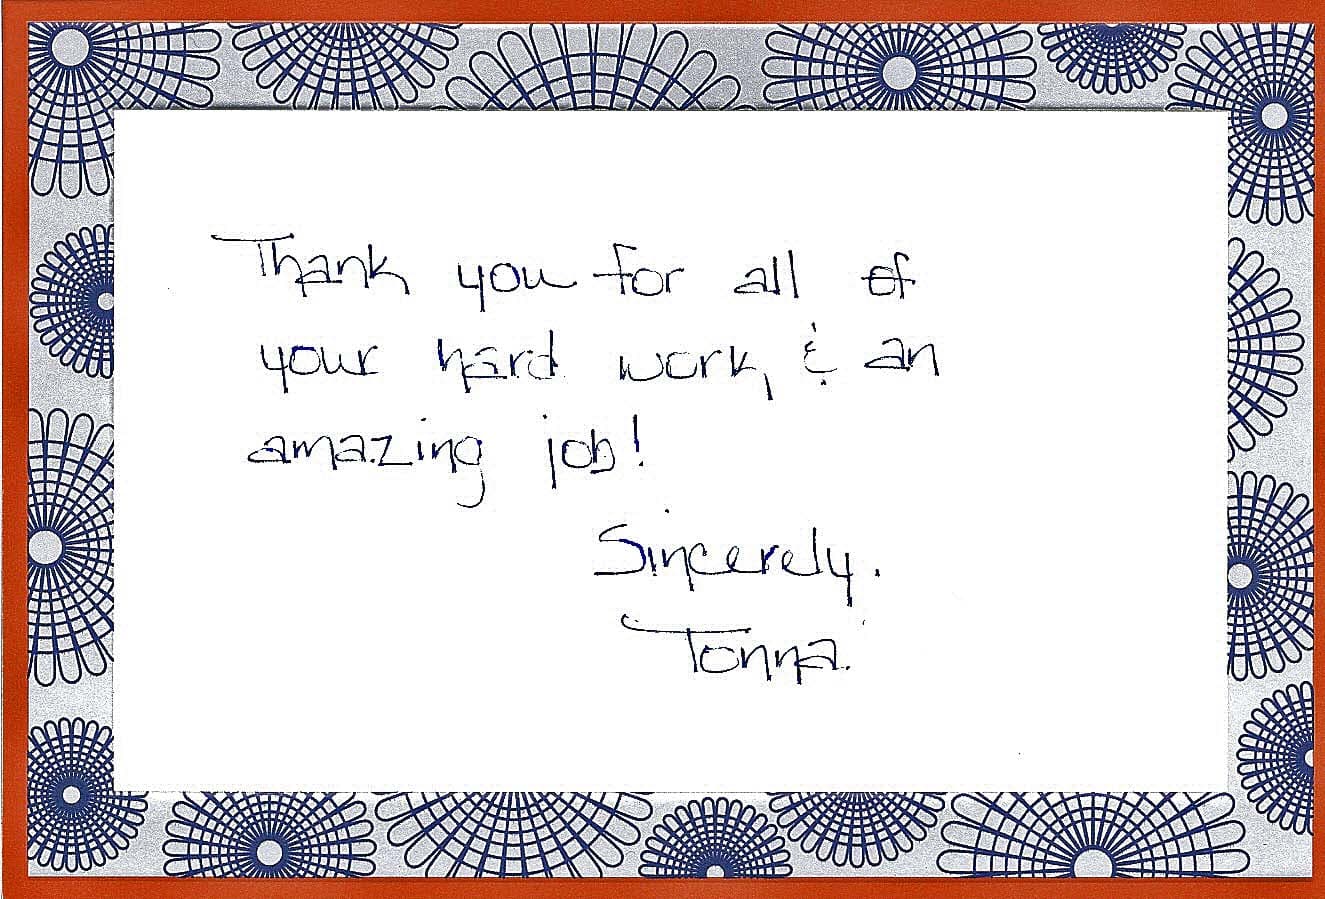 Thank you for all of
your hard work, & an
amazing job!
Sincerely.
Tonna.